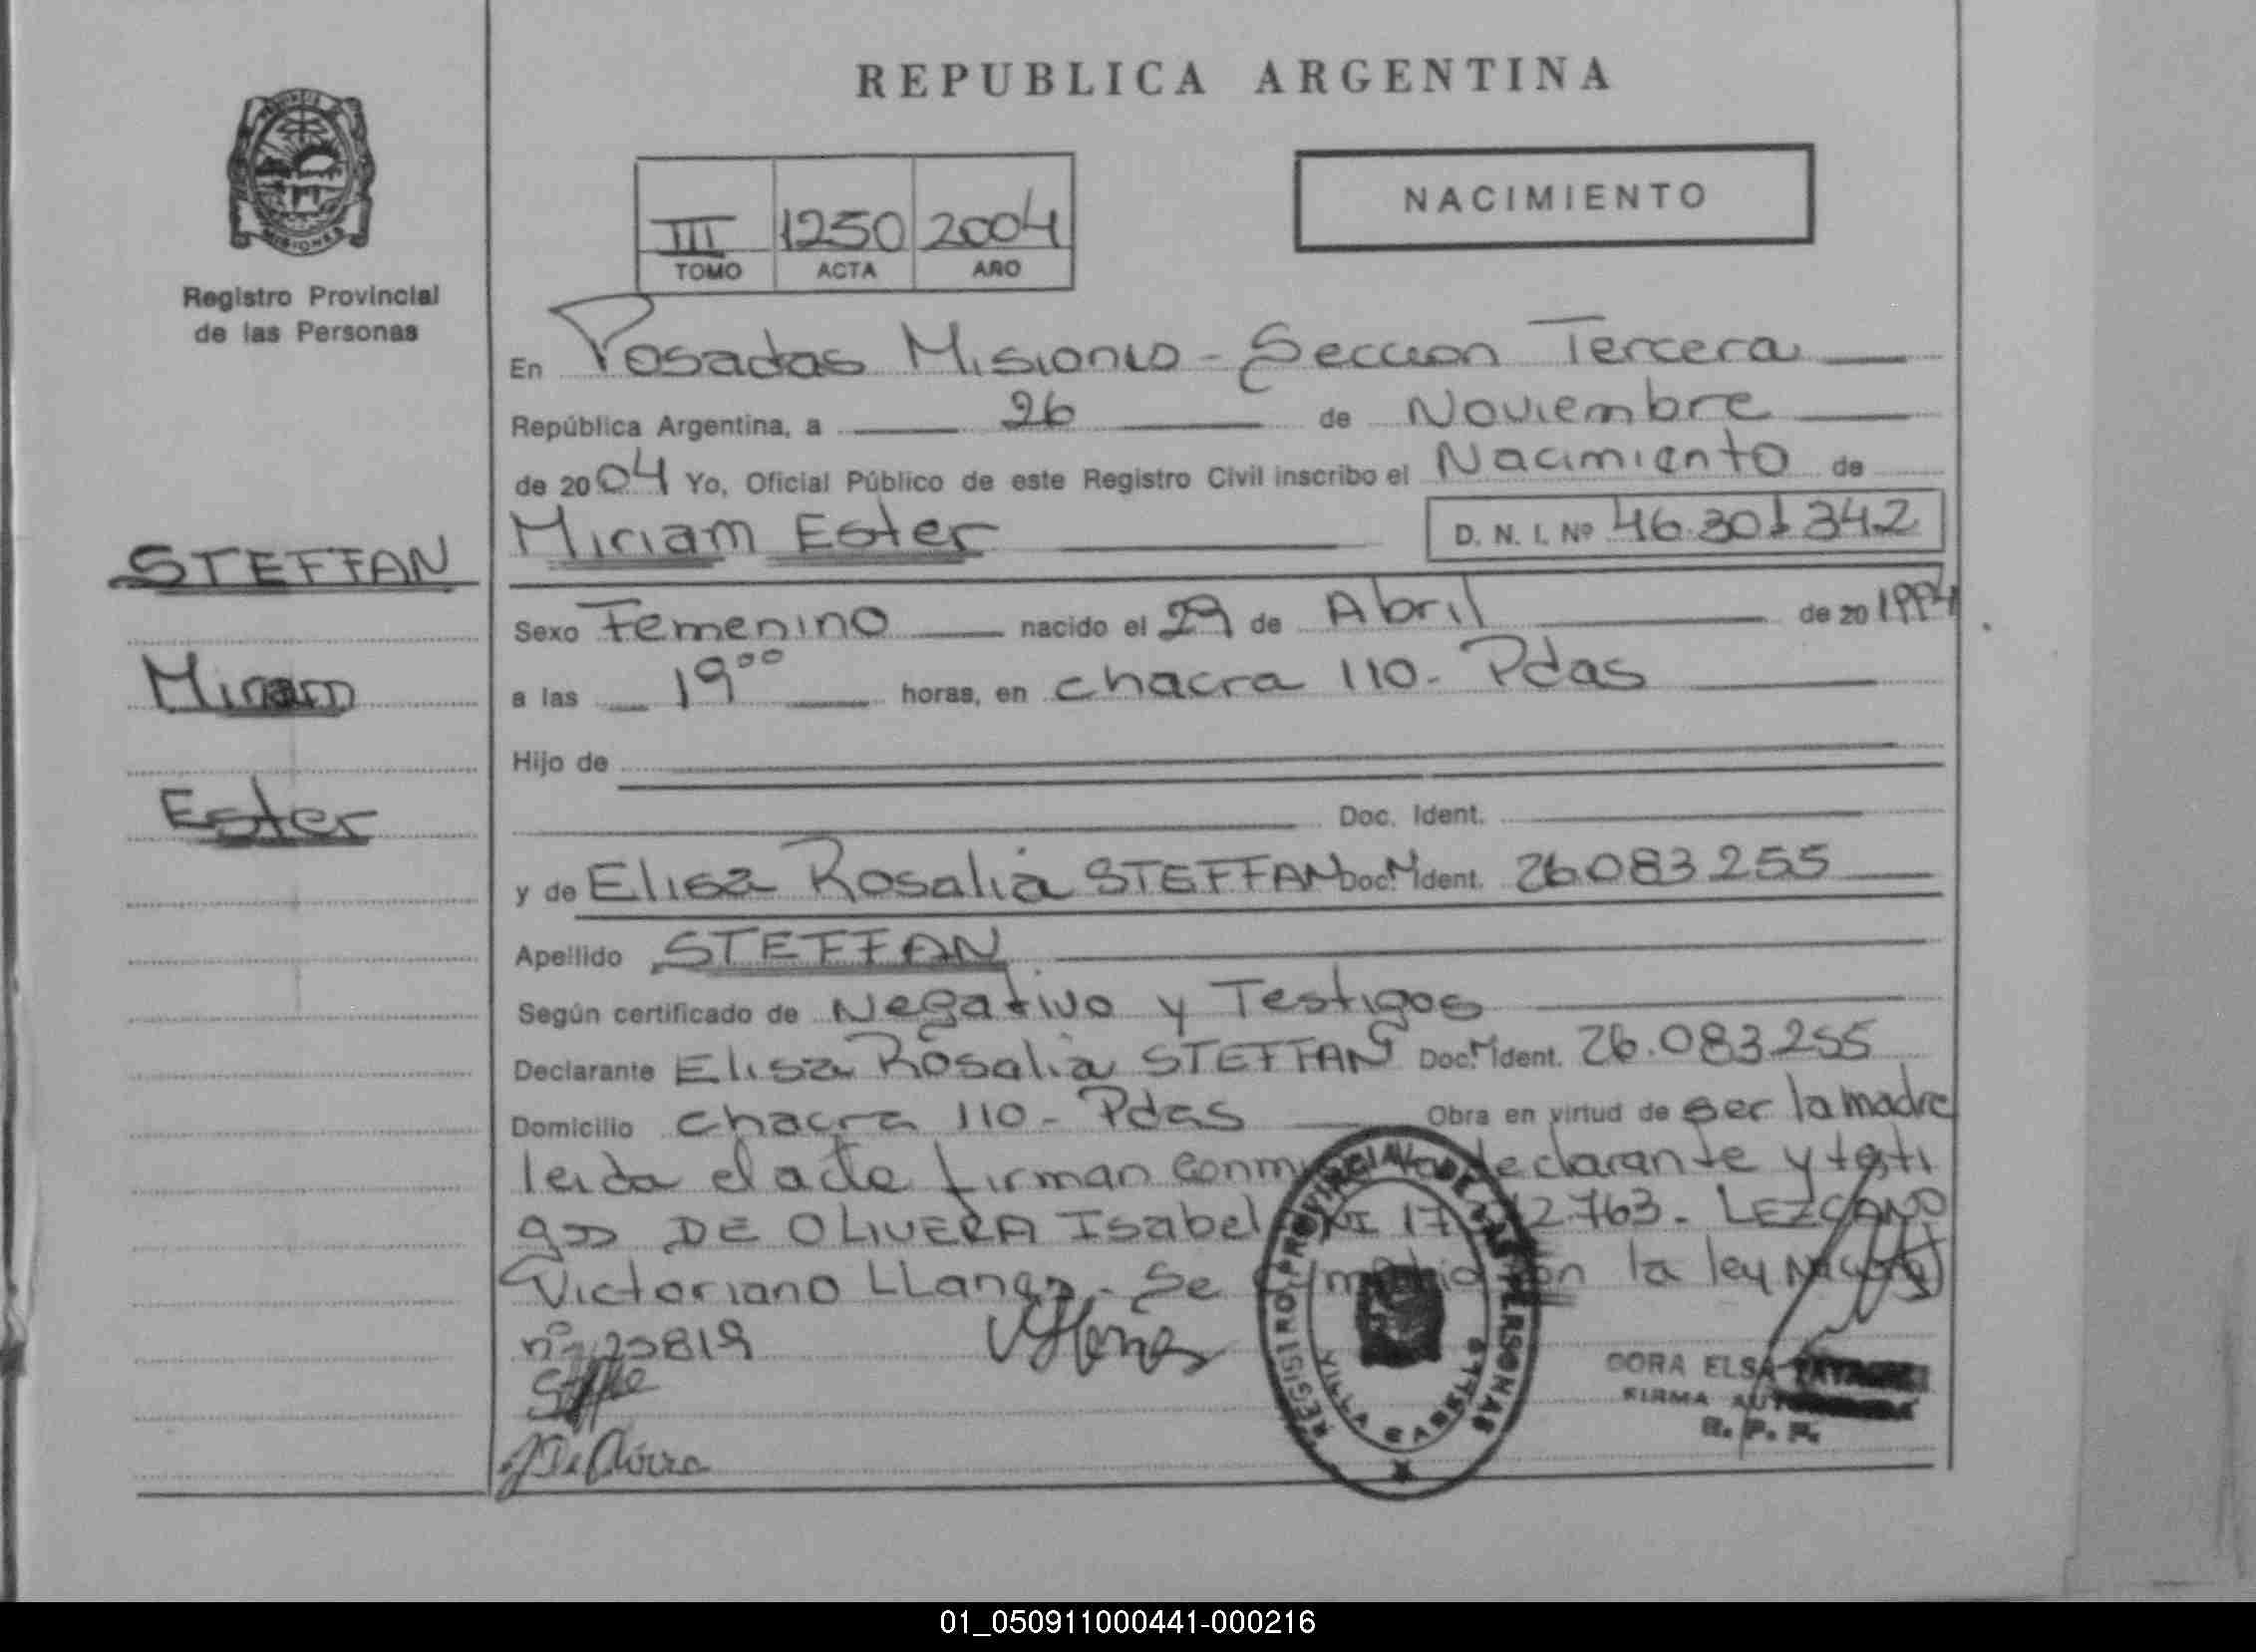 REPUBLICA ARGENTINA
NACIMIENTO
III 1250 2004
TOMO ACTA AÑO
PROVINCIA
MISIONES
Registro Provincial
de las Personas
En Posadas Misiones - Seccion Tercera
República Argentina, a 26 de Noviembre
de 2004 Yo, Oficial Público de este Registro Civil inscribo el Nacimiento de
Miriam Ester D. N. I. Nº 46.301342
STEFFAN
Miriam
Ester
Sexo Femenino nacido el 29 de Abril de 20 1994
a las 19⁰⁰ horas, en chacra 110 - Pdas
Hijo de
Doc. Ident.
y de Elisa Rosalia STEFFAN Doc. Ident. 26.083.255
Apellido STEFFAN
Según certificado de Negativo y Testigos
Declarante Elisa Rosalia STEFFAN Doc. Ident. 26.083255
Domicilio chacra 110 - Pdas Obra en virtud de ser la madre
leida el acta firman declarante y testi
gos DE OLIVERA Isabel 2.763. LEZCANO
Victoriano Se la ley
REGISTRO PROVINCIAL DE LAS PERSONAS
DORA ELSA
FIRMA
R. P. P.
01_050911000441-000216